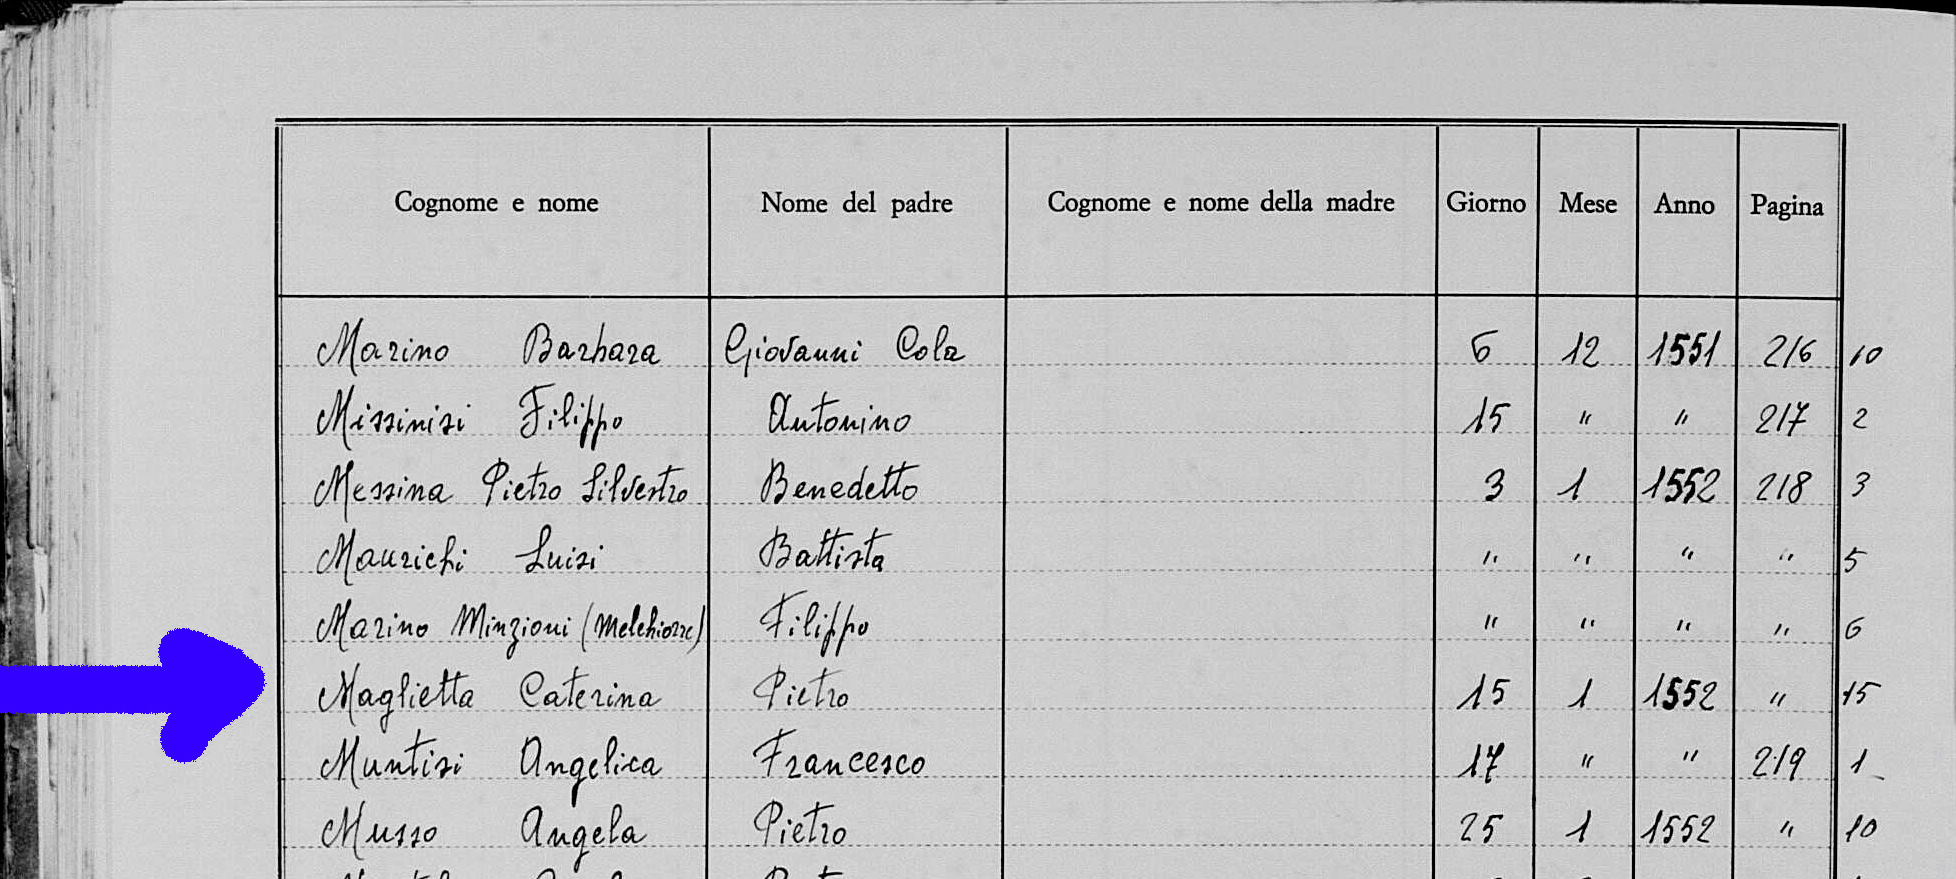 Cognome e nome Nome del padre Cognome e nome della madre Giorno Mese Anno Pagina
Marino Barbara Giovanni Cola 6 12 1551 216 10
Missinisi Filippo Antonino 15 " " 217 2
Messina Pietro Silvestro Benedetto 3 1 1552 218 3
Maurichi Luisi Battista " " " " 5
Marino Minzioni (Melchiorre) Filippo " " " " 6
Maglietta Caterina Pietro 15 1 1552 " 15
Muntisi Angelica Francesco 17 " " 219 1
Musso Angela Pietro 25 1 1552 " 10